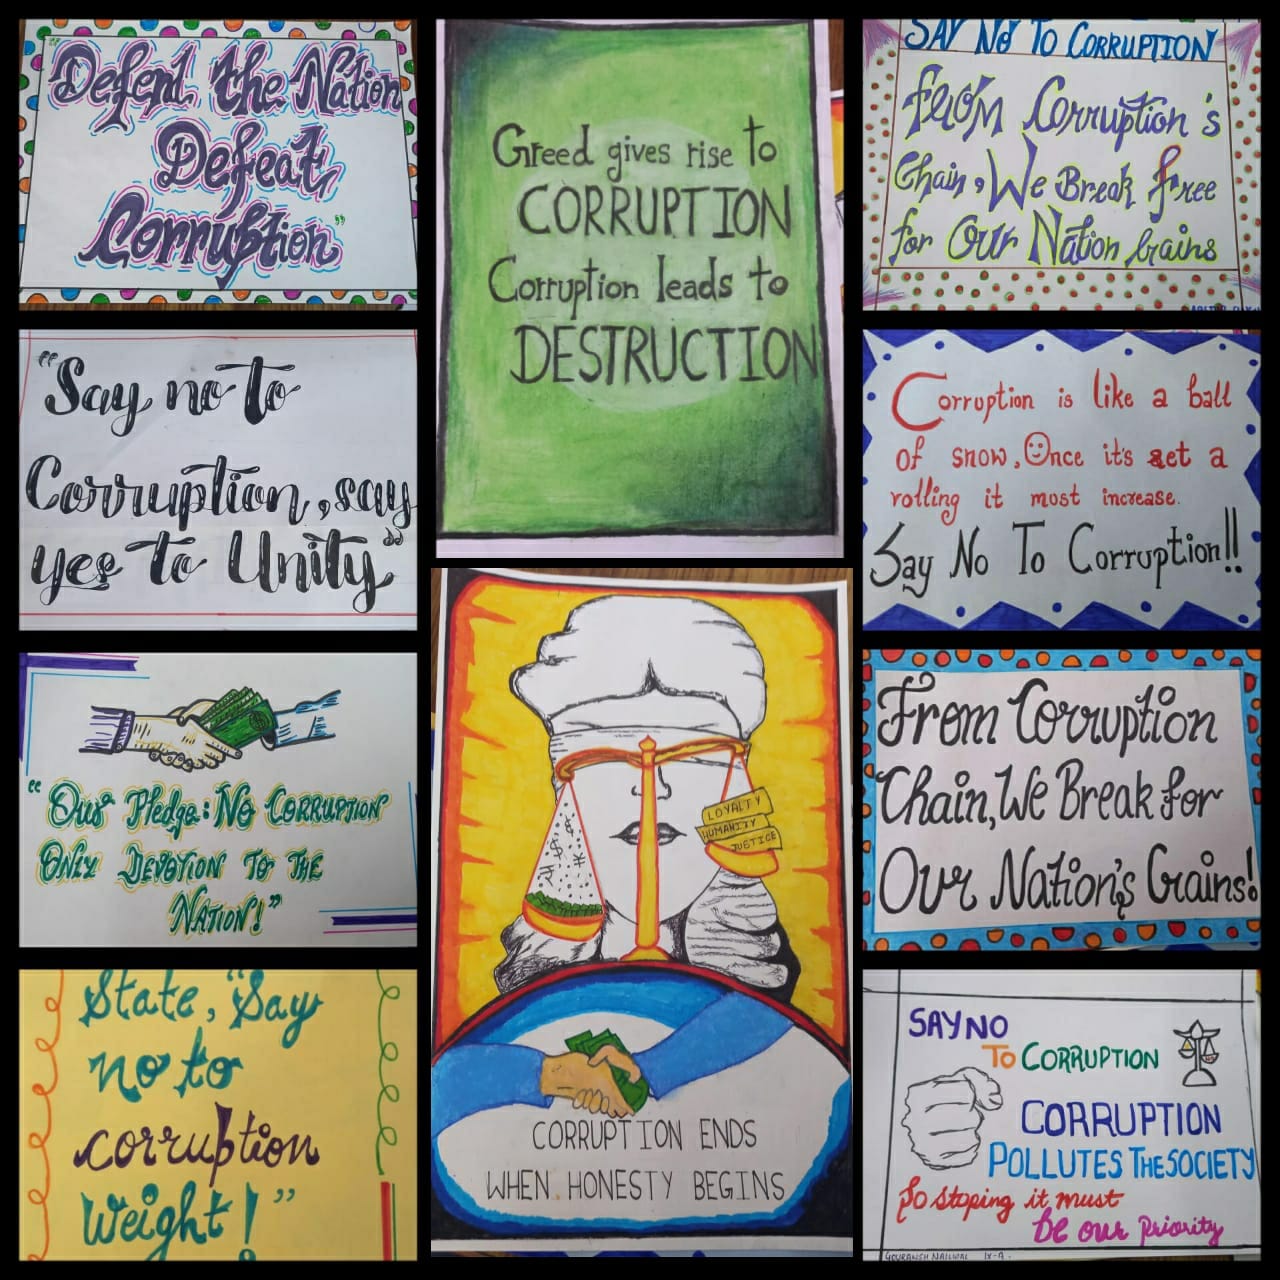 "Defend the Nation
Defeat
Corruption"
Greed gives rise to
CORRUPTION
Corruption leads to
DESTRUCTION
SAY NO TO CORRUPTION
From Corruption's
Chain, We Break free
for Our Nation Grains
"Say no to
Corruption, say
yes to Unity"
Corruption is like a ball
of snow, Once it's set a
rolling it must increase.
Say No To Corruption!!
"Our Pledge: No CORRUPTION
ONLY DEVOTION TO THE
NATION!"
LOYALTY
HUMANITY
JUSTICE
CORRUPTION ENDS
WHEN HONESTY BEGINS
From Corruption
Chain, We Break for
Our Nation's Grains!
State, "Say
no to
corruption
Weight!"
SAY NO
TO CORRUPTION
CORRUPTION
POLLUTES THE SOCIETY
So stoping it must
be our Priority
GOURANSH NAILWAL IX-A.